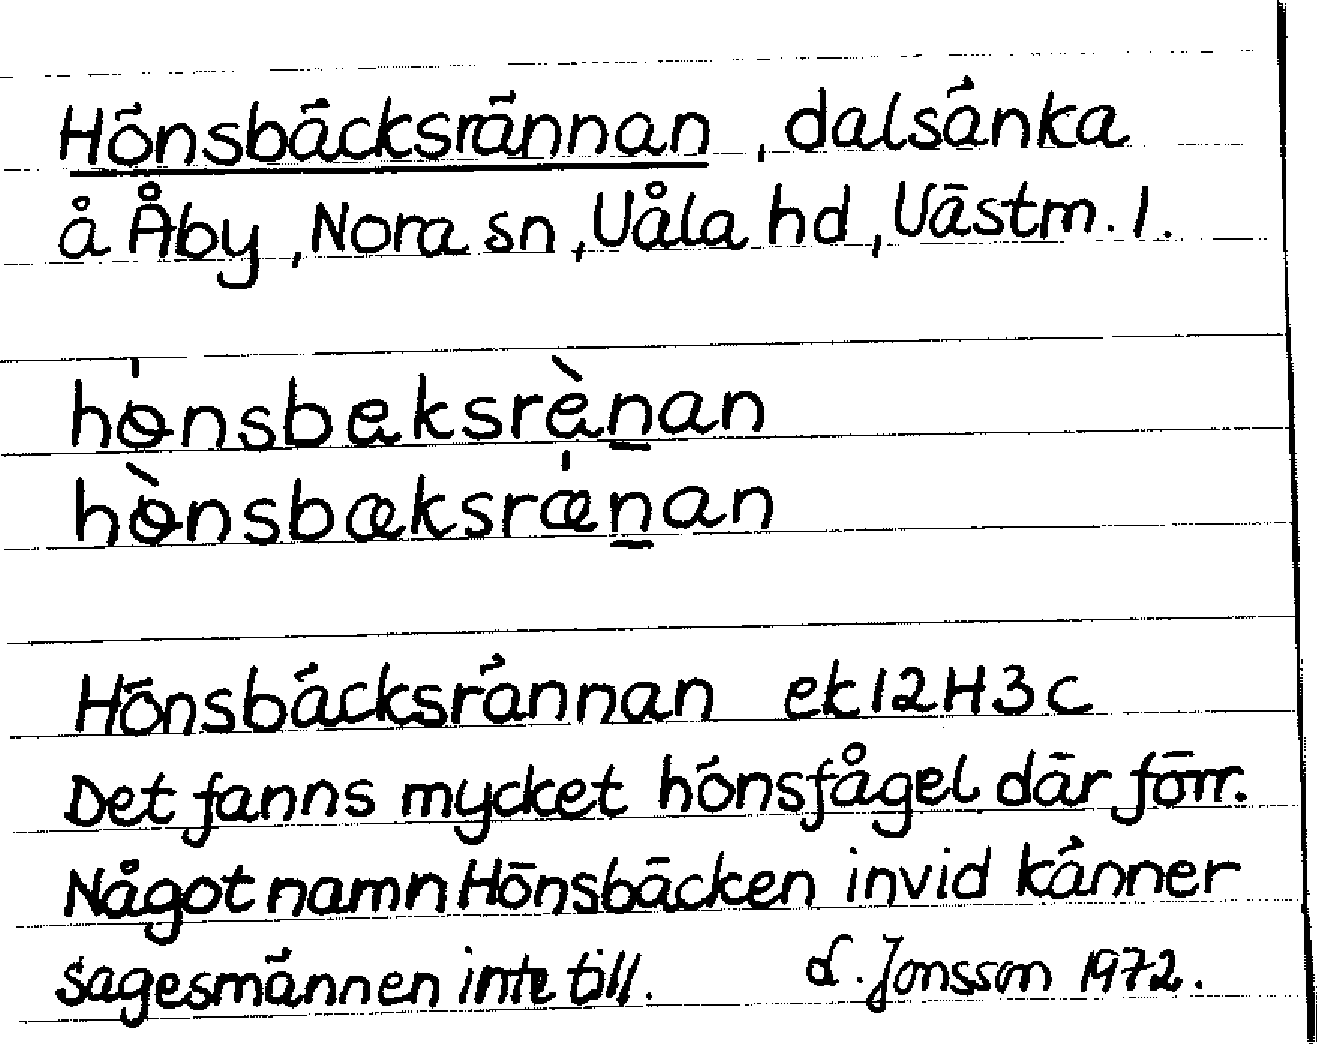 Hönsbäcksrännan, dalsänka
å Åby, Nora sn, Våla hd, Västm. l.
hɵ̍nsbeksrèn̲an
hɵ̀nsbæksræ̍n̲an
Hönsbäcksrännan ek 12H3c
Det fanns mycket hönsfågel där förr.
Något namn Hönsbäcken invid känner
sagesmännen inte till. L. Jonsson 1972.